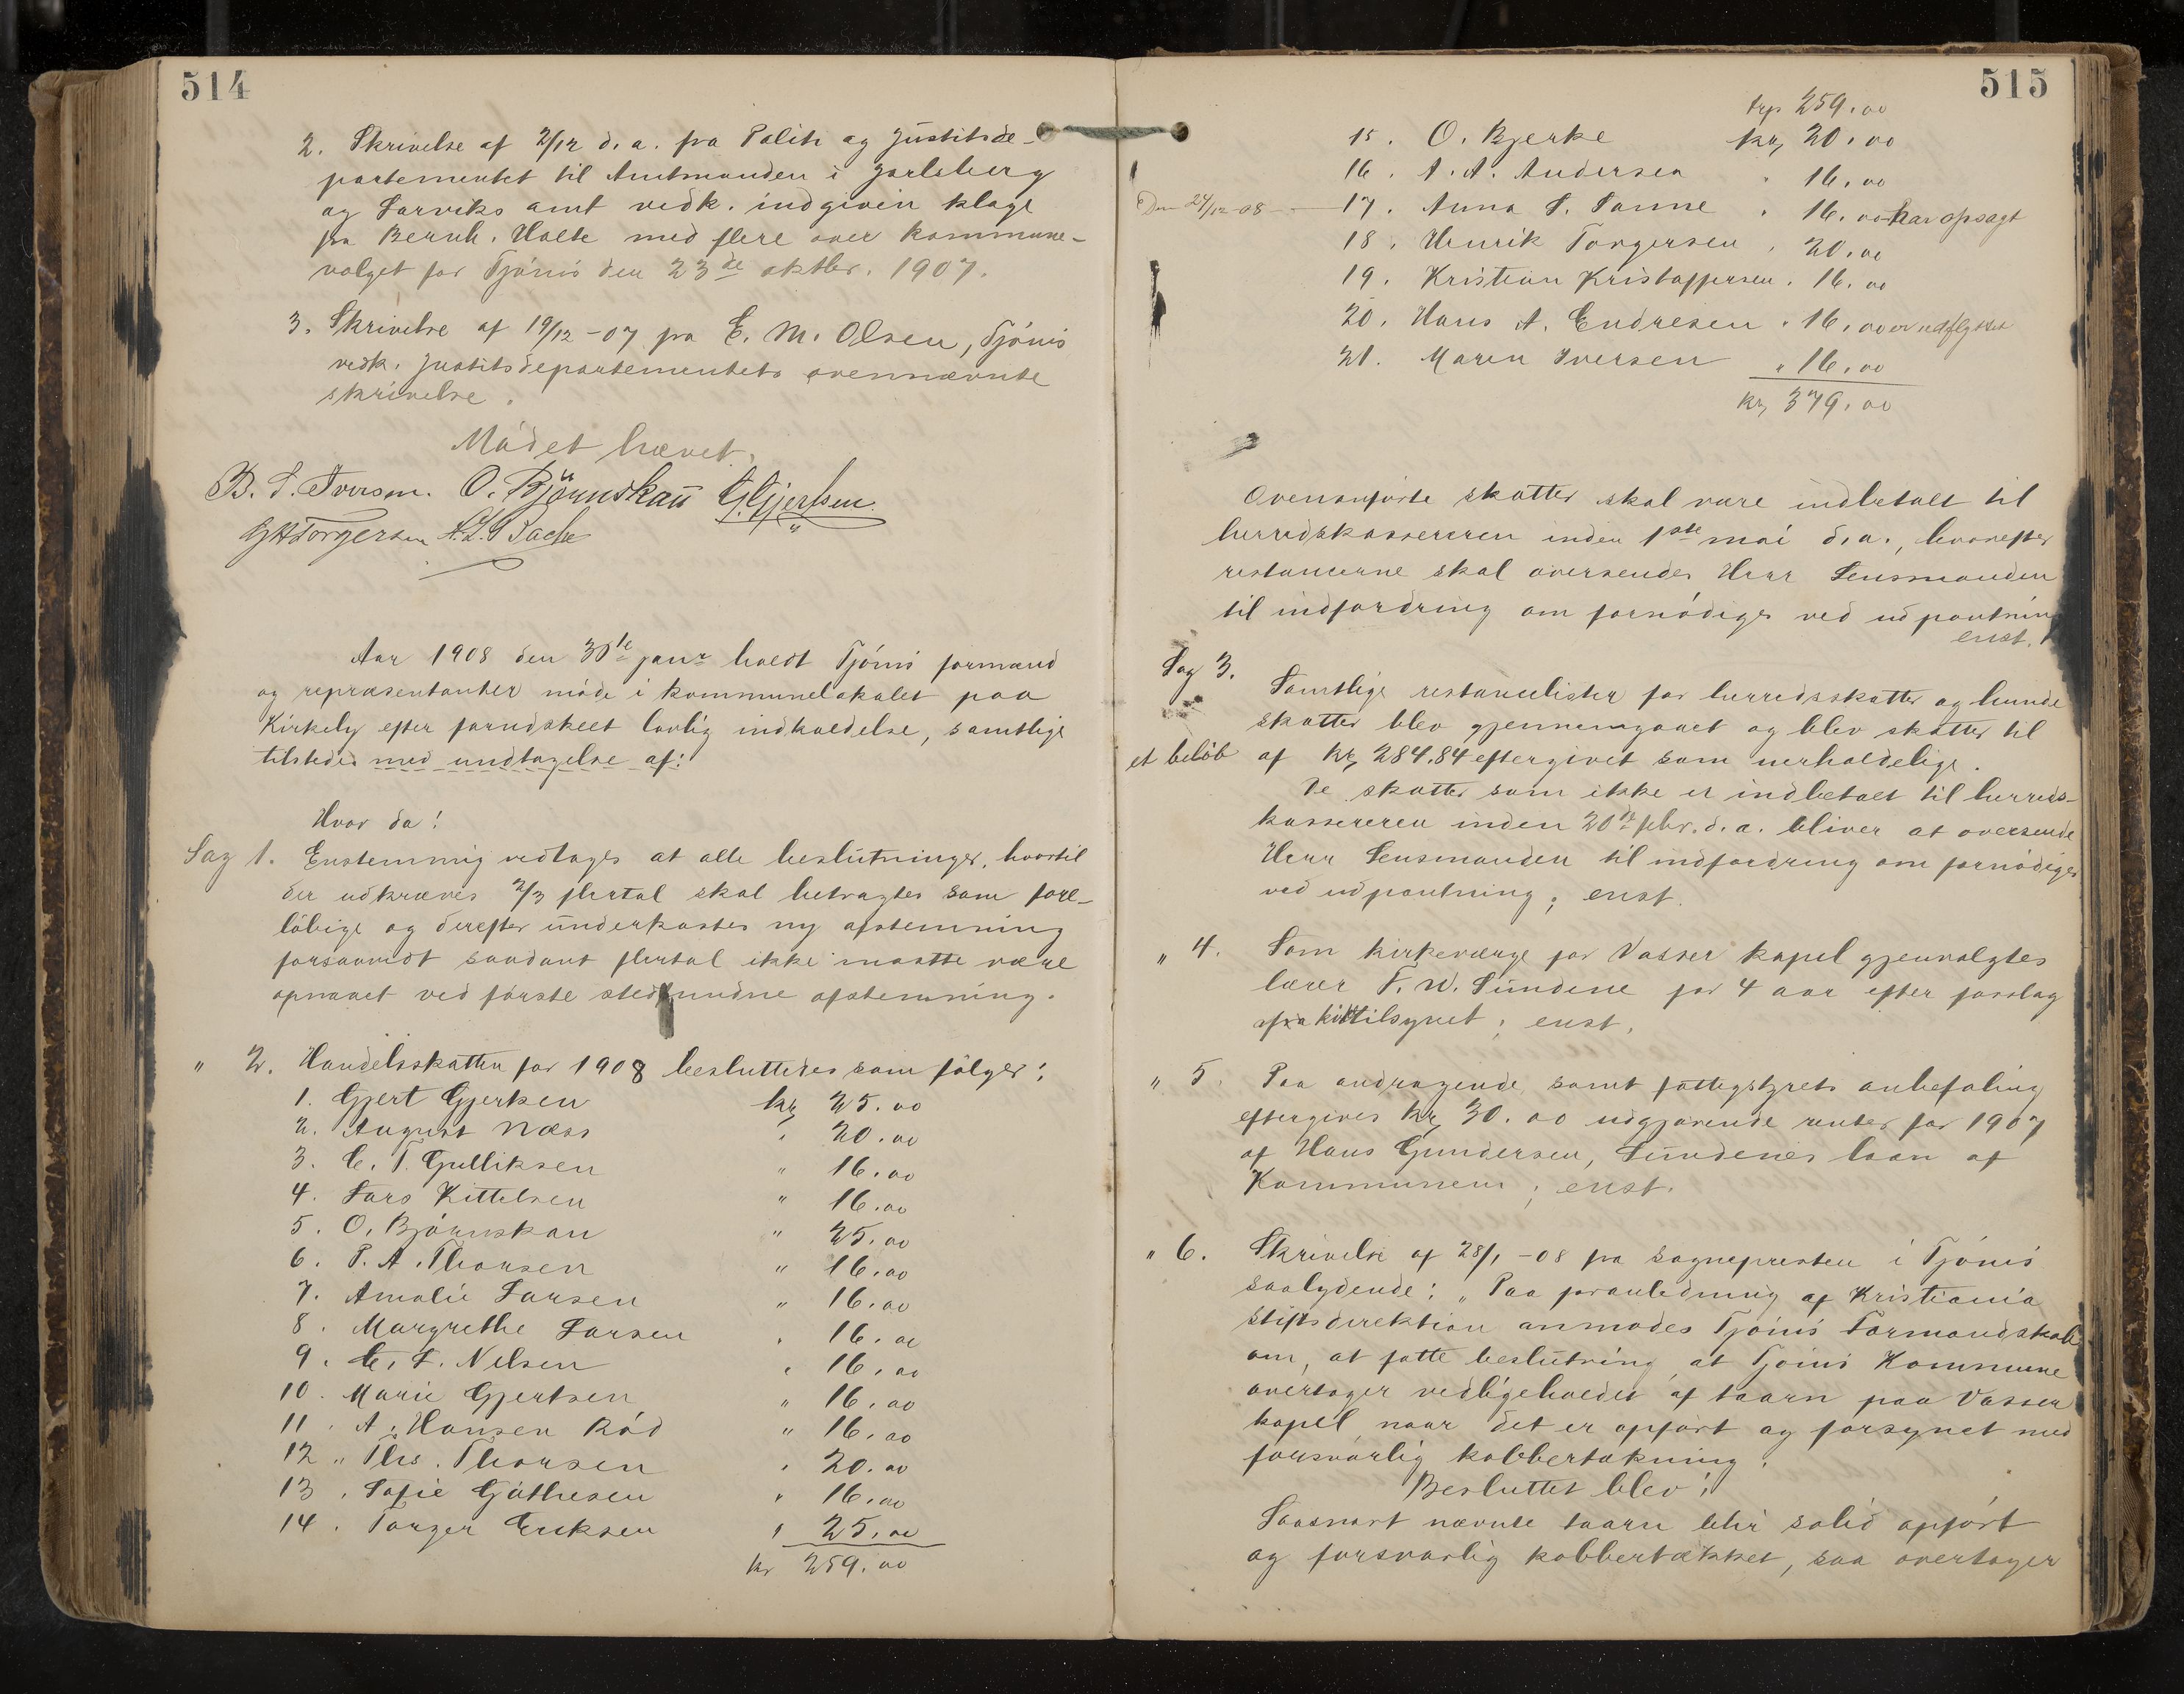 514
2. Skrivelse af 2/12 d. a. fra Politi og Justitsde-
partementet til Amtmanden i Jarlsberg
og Larviks amt vedk. indgiven klage
fra Bernh. Holte med flere over kommune-
valget for Tjömö den 23de oktbr. 1907.
3. Skrivelse af 19/12-07 fra E. M. Olsen, Tjömö
vedk. Justitsdepartementets ovennævnte
skrivelse.
Mödet hævet.
B. L. Iversen. O. Björnnskau G. Gjertsen.
G H Torgersen A. L. Bache
Aar 1908 den 30te janr holdt Tjömö formænd
og repræsentanter möde i kommunelokalet paa
Kirkely efter forudskeet lovlig indkaldelse, samtlige
tilstede med undtagelse af:
Hvor da!
Sag 1. Enstemmig vedtages at alle beslutninger, hvortil
der udkræves 2/3 flertal skal betragtes som fore-
löbige og derefter underkastes ny afstemning
forsaavidt saadant flertal ikke maatte være
opnaaet ved förste stedfundne afstemning.
" 2. Handelsskatten for 1908 besluttedes som fölger:
1. Gjert Gjertsen kr 25.00
2. August Næss " 20.00
3. C. T. Gulliksen " 16.00
4. Lars Kittelsen " 16.00
5. O. Björnskau " 25.00
6. P. A. Thorsen " 16.00
7. Amalie Larsen " 16.00
8. Margrethe Larsen " 16.00
9. C. L. Nelsen " 16.00
10. Marie Gjertsen " 16.00
11. A. Hansen Röd " 16.00
12 " Ths. Thorsen " 20.00
13. Sofie Göthesen " 16.00
14. Torger Eriksen " 25.00
kr 259.00
515
trp 259.00
15. O. Bjerke kr 20.00
16. A. A. Andersen " 16.00
Den 24/12-08 17. Anna S. Sanne " 16.00 har opsagt
18. Henrik Torgersen " 20.00
19. Kristian Kristoffersen " 16.00
20. Hans A. Endresen " 16.00 er udflyttet
21. Maren Iversen " 16.00
kr 379.00
Ovenanförte skatter skal være indbetalt til
herredskassereren inden 1ste mai d. a., hvorefter
restancerne skal oversendes Herr Lensmanden
til indfordring om fornödiges ved udpantning
enst.
Sag 3. Samtlige restancelister for herredsskatter og hunde
skatter blev gjennemgaaet og blev skatter til
et belöb af kr 284.84 eftergivet som uerholdelige.
De skatter som ikke er indbetalt til herreds-
kassereren inden 20de febr. d. a. bliver at oversende
Herr Lensmanden til indfordring om fornödiges
ved udpantning; enst.
" 4. Som kirkeværge for Vasser kapel gjenvalgtes
lærer F. W. Sundene for 4 aar efter forslag
fra kirketilsynet; enst.
" 5. Paa andragende samt fattigstyrets anbefaling
eftergives kr 30.00 udgjörende renter for 1907
af Hans Gundersen, Sundenes laan af
Kommunen; enst.
" 6. Skrivelse af 28/1-08 fra sognepresten i Tjömö
saalydende: "Paa foranledning af Kristiania
stiftsdirektion anmodes Tjömö Formandskab
om, at fatte beslutning at Tjömö Kommune
overtager vedligeholdet af taarn paa Vasser
kapel, naar det er opfört og forsynet med
forsvarlig kobbertækning.
Besluttet blev!
Saasnart nævnte taarn blir solid opfört
og forsvarlig kobbertækket, saa overtager